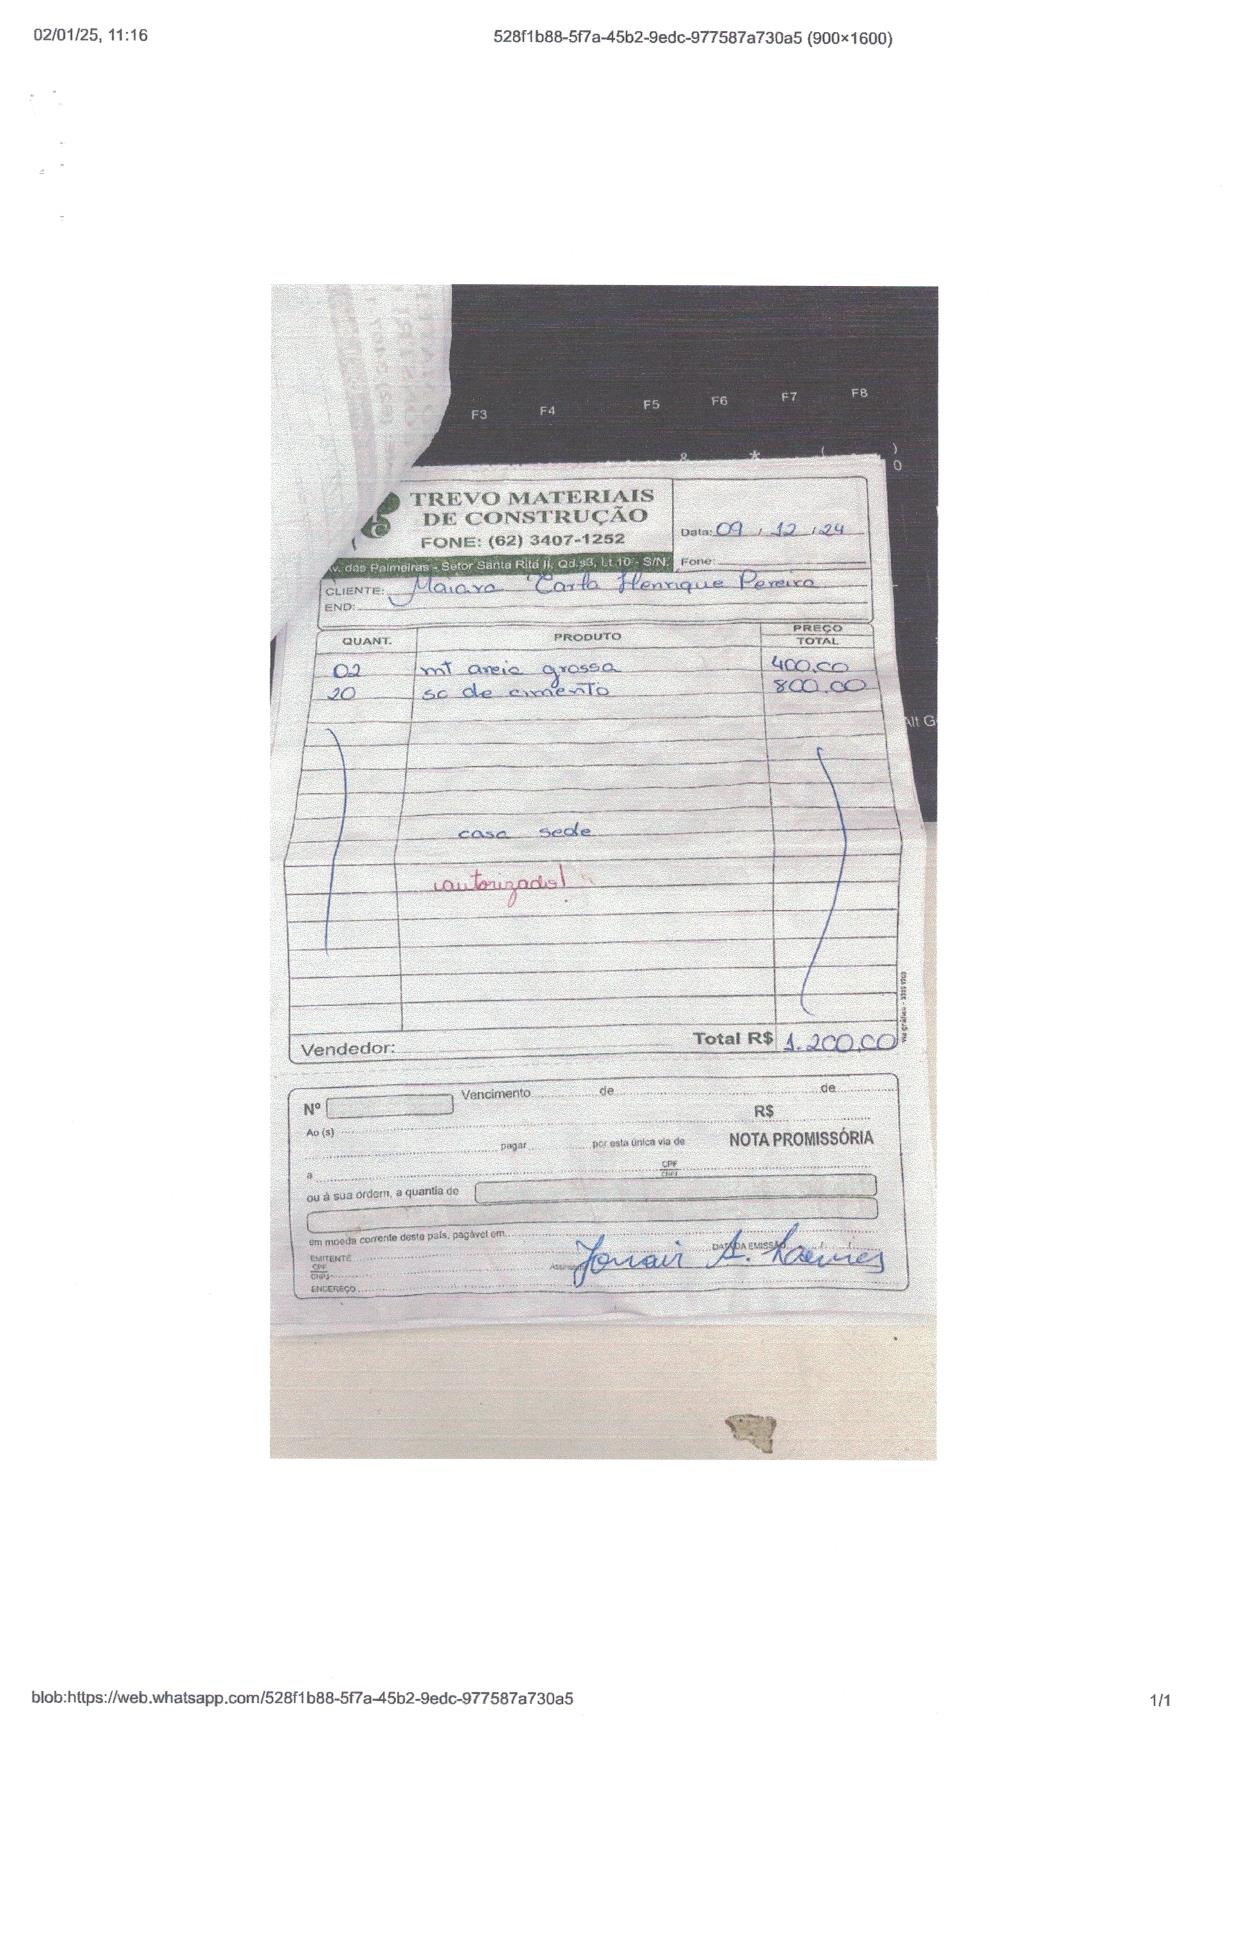 02/01/25, 11:16 528f1b88-5f7a-45b2-9edc-977587a730a5 (900×1600)
F3 F4 F5 F6 F7 F8
& * ( )
0
TREVO MATERIAIS
DE CONSTRUÇÃO
FONE: (62) 3407-1252
Data: 09 / 12 / 24
v. das Palmeiras - Setor Santa Rita II, Qd.93, Lt.10 - S/N. Fone:
CLIENTE: Maiara Carla Henrique Pereira
END:
QUANT. PRODUTO PREÇO TOTAL
02 mt areia grossa 400,00
20 sc de cimento 800,00
Alt G
casa sede
autorizado!
Vendedor: Total R$ 1.200,00
Nº Vencimento de de
R$
Ao (s)
pagar por esta única via de NOTA PROMISSÓRIA
a CPF CNPJ
ou à sua ordem, a quantia de
em moeda corrente deste país, pagável em
EMITENTE DATA DA EMISSÃO / /
CPF
CNPJ
Jonair A.
ENDEREÇO
blob:https://web.whatsapp.com/528f1b88-5f7a-45b2-9edc-977587a730a5 1/1